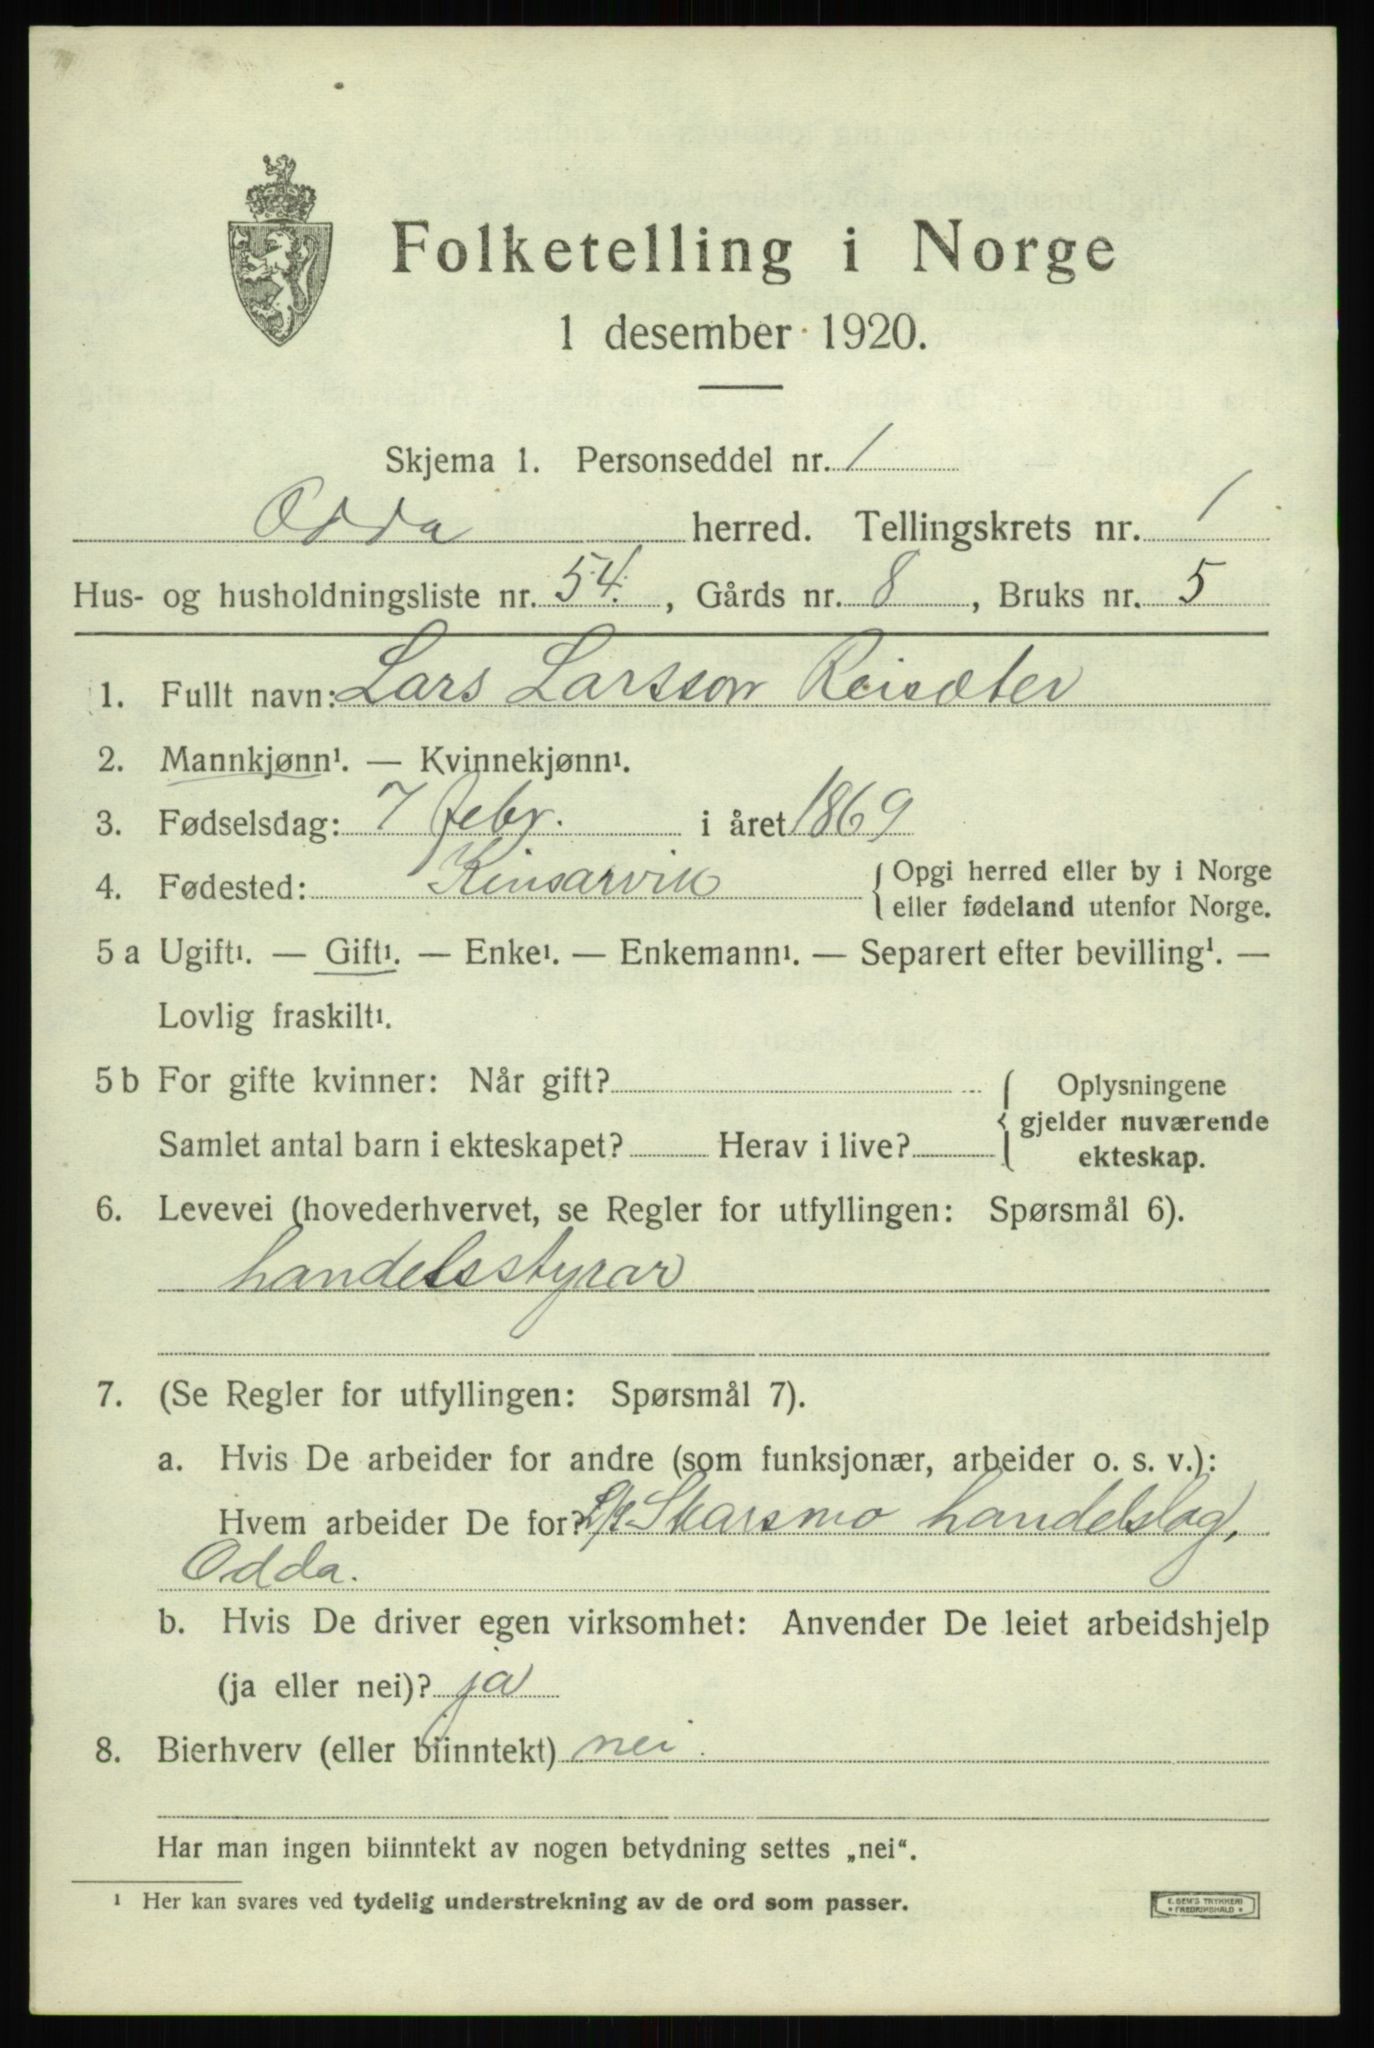 Folketelling i Norge
1 desember 1920.
Skjema 1. Personseddel nr. 1
Odda herred. Tellingskrets nr. 1
Hus- og husholdningsliste nr. 54., Gårds nr. 8, Bruks nr. 5
1. Fullt navn: Lars Larsson Reisæter
2. Mannkjønn¹. — Kvinnekjønn¹.
3. Fødselsdag: 7 febr. i året 1869
4. Fødested: Kinsarvik { Opgi herred eller by i Norge
eller fødeland utenfor Norge.
5 a Ugift¹. — Gift¹. — Enke¹. — Enkemann¹. — Separert efter bevilling¹. —
Lovlig fraskilt¹.
5 b For gifte kvinner: Når gift? { Oplysningene
gjelder nuværende
Samlet antal barn i ekteskapet? Herav i live? ekteskap.
6. Levevei (hovederhvervet, se Regler for utfyllingen: Spørsmål 6).
handelsstyrar
7. (Se Regler for utfyllingen: Spørsmål 7).
a. Hvis De arbeider for andre (som funksjonær, arbeider o. s. v.):
Hvem arbeider De for? Skarsmo handelslag,
Odda.
b. Hvis De driver egen virksomhet: Anvender De leiet arbeidshjelp
(ja eller nei)? ja
8. Bierhverv (eller biinntekt) nei.
Har man ingen biinntekt av nogen betydning settes „nei“.
¹ Her kan svares ved tydelig understrekning av de ord som passer.
E. SEM'S TRYKKERI
* FREDRIKSHALD *